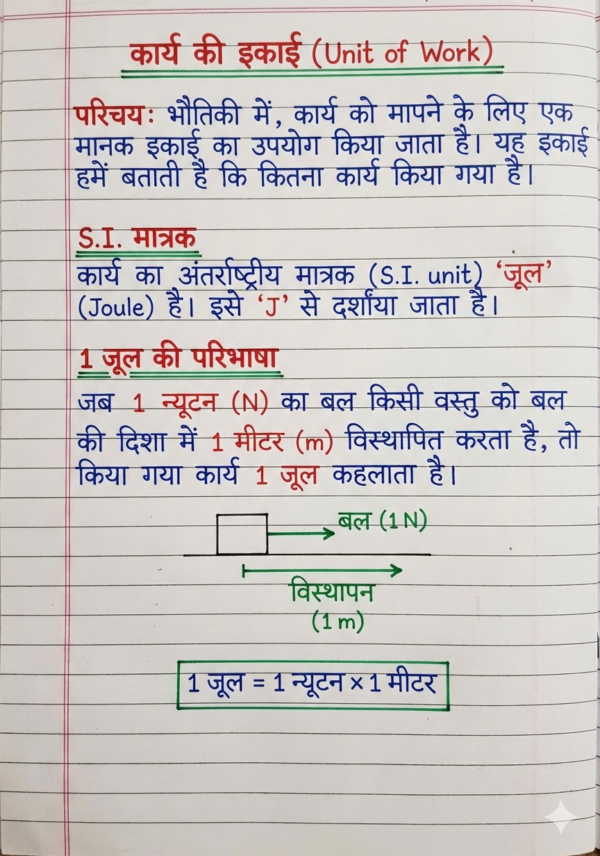 कार्य की इकाई (Unit of Work)
परिचय: भौतिकी में, कार्य को मापने के लिए एक
मानक इकाई का उपयोग किया जाता है। यह इकाई
हमें बताती है कि कितना कार्य किया गया है।
S.I. मात्रक
कार्य का अंतर्राष्ट्रीय मात्रक (S.I. unit) ‘जूल’
(Joule) है। इसे ‘J’ से दर्शाया जाता है।
1 जूल की परिभाषा
जब 1 न्यूटन (N) का बल किसी वस्तु को बल
की दिशा में 1 मीटर (m) विस्थापित करता है, तो
किया गया कार्य 1 जूल कहलाता है।
बल (1 N)
विस्थापन
(1 m)
1 जूल = 1 न्यूटन × 1 मीटर